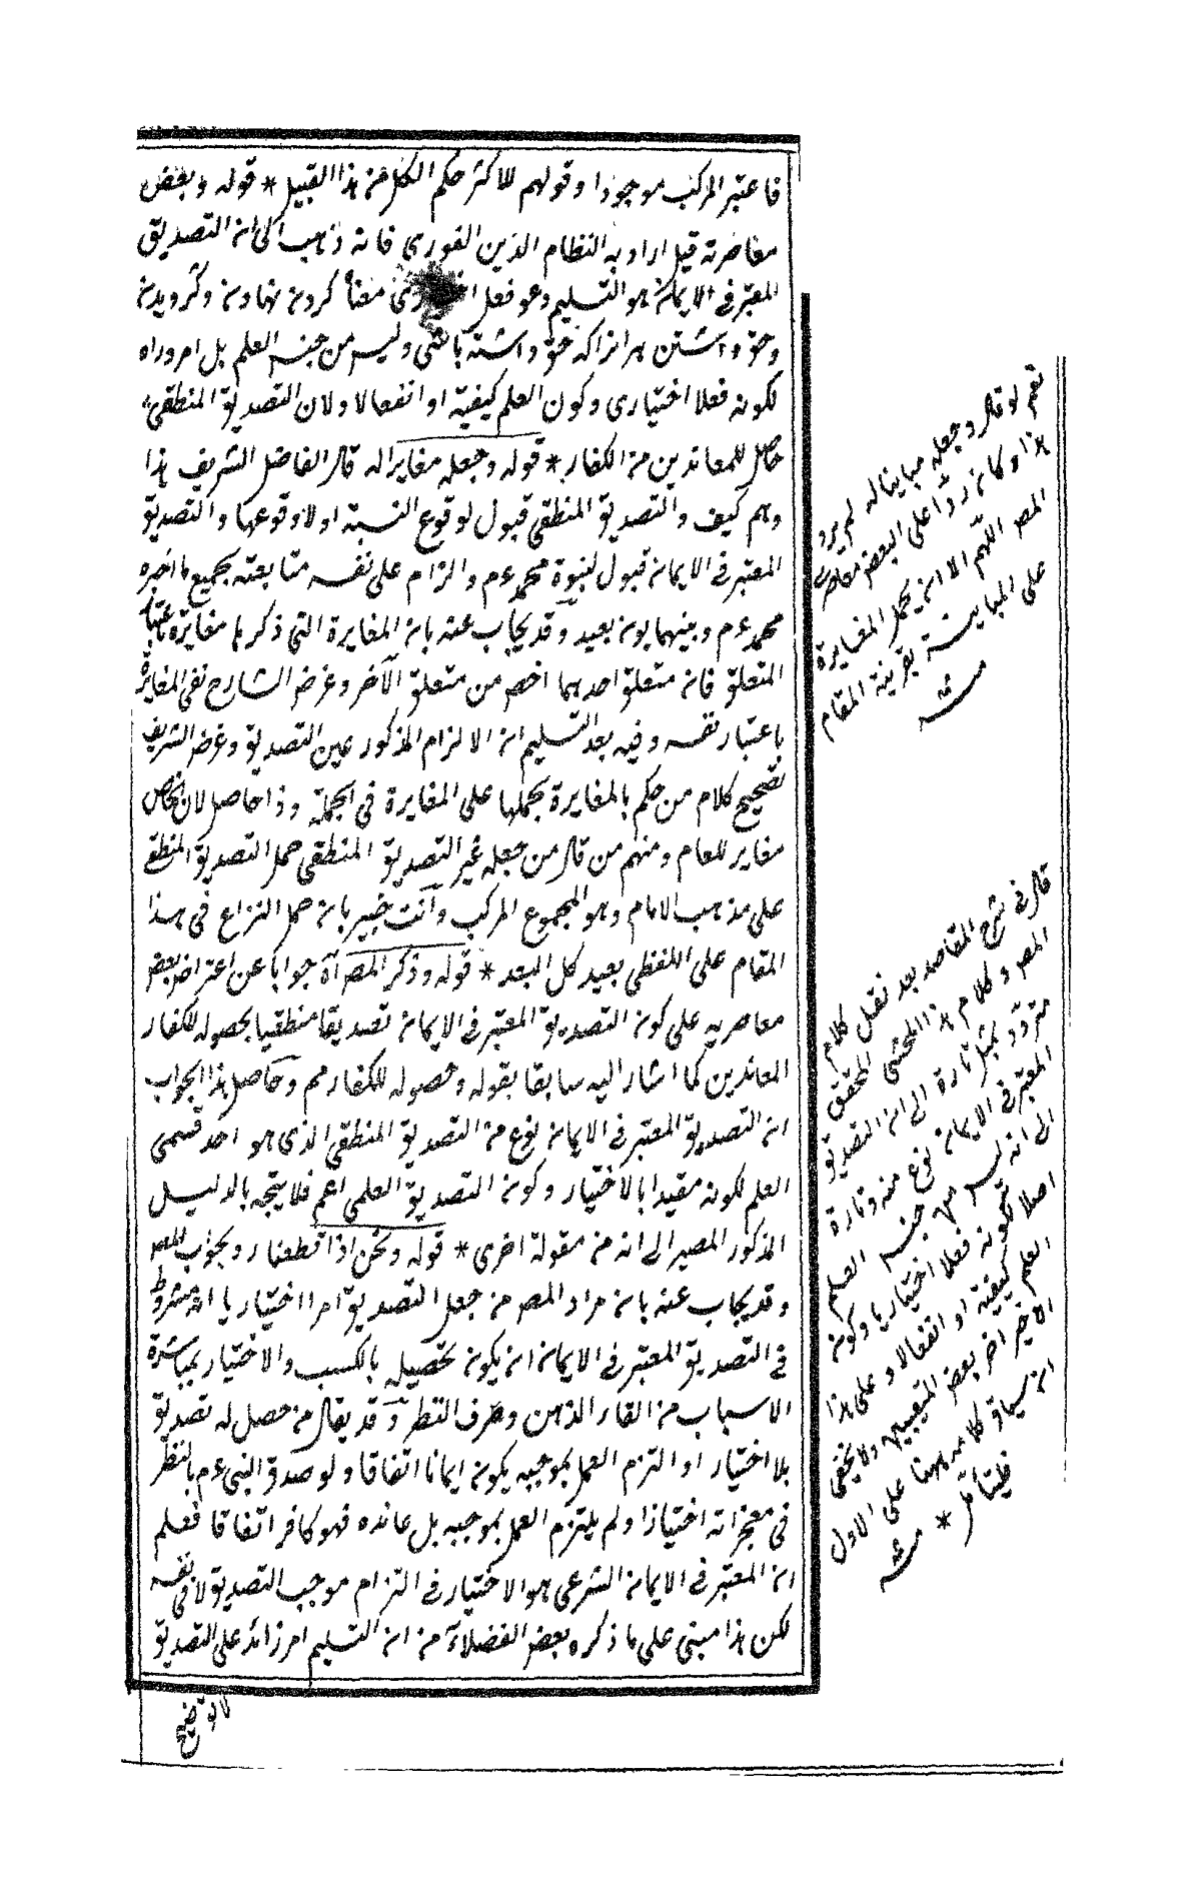 فاعتبر المركب موجودا وقولهم للاكثر حكم الكل من هذا القبيل * قوله وبعض
معاصرته قيل اراد به النظام الدين الفورى فانه ذهب الى ان التصديق
المعتبر فى الايمان هو التسليم وهو فعل معناه كرون نهادن وكرويدن
وحق داشتن مر انرا كه حق داشته باشى وليس من جنس العلم بل امر وراه
لكونه فعلا اختيارى وكون العلم كيفية او انفعالا ولان التصديق المنطقى
حاصل للمعاندين من الكفار * قوله وجعله مغايرا له قال الفاضل الشريف هذا
وهم كيف والتصديق المنطقى قبول لوقوع النسبة او لا وقوعها والتصديق
المعتبر فى الايمان قبول لنبوة محمد عم والزام على نفسه متابعته بجميع ما اخبره
محمد عم وبينهما بون بعيد وقد يجاب عنه بان المغايرة التى ذكرها مغايرة باعتبار
المتعلق فان متعلق احدهما اخص من متعلق الآخر وغرض الشارح نفى المغايرة
باعتبار نفسه وفيه بعد التسليم ان الالزام المذكور عين التصديق وغرض الشريف
تصحيح كلام من حكم بالمغايرة بحملها على المغايرة فى الجملة وذا حاصل لان الخاص
مغاير للعام ومنهم من قال من جعله غير التصديق المنطقى حمل التصديق المنطقى
على مذهب الامام وهو المجموع المركب وانت خبير بان حمل النزاع فى هذا
المقام على اللفظى بعيد كل البعد * قوله وذكر المص آه جوابا عن اعتراض بعض
معاصريه على كون التصديق المعتبر فى الايمان تصديقا منطقيا بحصوله للكفار
المعاندين كما اشار اليه سابقا بقوله وحصوله للكفار مم وحاصل هذا الجواب
ان التصديق المعتبر فى الايمان نوع من التصديق المنطقى الذى هو احد قسمى
العلم لكونه مقيدا بالاختيار وكون التصديق العلمى اعم فلا يتجه بالدليل
المذكور المصير الى انه من مقولة اخرى * قوله ونحن اذا قطعنا ر ويجوب المص
وقد يجاب عنه بان مراد المص من جعل التصديق امرا اختياريا انه مشروط
فى التصديق المعتبر فى الايمان ان يكون تحصيله بالكسب والاختيار بمباشرة
الاسباب من القاء الذهن وصرف النظر وقد يقال من حصل له تصديق
بلا اختيار او التزم العمل بموجبه يكون ايمانا اتفاقا ولو صدق النبى عم بالنظر
فى معجزاته اختيارا ولم يلتزم العمل بموجبه بل عانده فهو كافر اتفاقا فعلم
ان المعتبر فى الايمان الشرعى هو الاختيار فى التزام موجب التصديق لا فى نفسه
لكن هذا مبنى على ما ذكره بعض الفضلاء من ان التسليم امر زائد على التصديق
نعم لو قال وجعله مباينا له لم يرد
هذا وكان ردا على البعض معاصر
المص اللهم الا ان يحمل المغايرة
على المباينة بقرينة المقام
منه
قال فى شرح المقاصد بعد نقل كلام
المص وكلام هذا المحشى المحقق
متردد يميل تارة الى ان التصديق
المعتبر فى الايمان نوع منه وتارة
الى انه ليس من جنس العلم
اصلا لكونه فعلا اختياريا وكون
العلم كيفية او انفعالا وعلى هذا
الاخير اخر بعض ولا يخفى
ان سياق كلامه ههنا على الاول
فليتأمل * منه